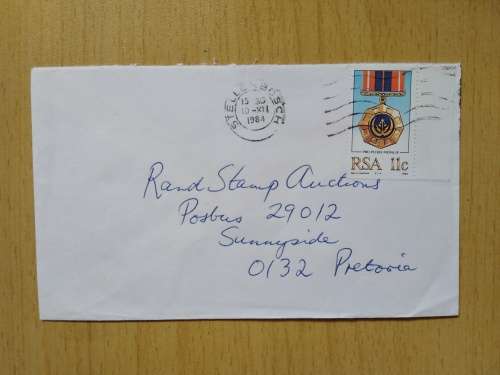 STELLENBOSCH
15 30
10-XII
1984
PRO PATRIA MEDALJE
RSA 11c
Rand Stamp Auctions
Posbus 29012
Sunnyside
0132 Pretoria